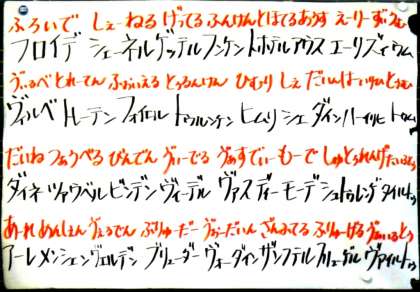 ふろいで しぇーねる げってる ふんけんとほてるあうす えーりーずぃうむ
フロイデ シェーネル ゲッテル フンケン トホテルアウス エーリーズィウム
ゔぃるべ とれーてん ふぉいえる とぅるんけん ひむりしぇ だいん はいりひとぅむ
ヴィルベ トレーテン フォイエル トゥルンケン ヒムリシェ ダイン ハーイリヒ トゥム
だいね つぁうべる びんでん ゔぃーでる ゔぁすでぃー もーで しゅとぅれんげ
ダイネ ツァウベル ビンデン ヴィーデル ヴァスディー モーデ シュトゥレング タイルトゥ
あーれ めんしぇん ゔぇるでん ぶりゅーだー ゔぉーだいん ざんふてる ふりゅーげる ゔぁいるとぅ
アーレ メンシェン ヴェルデン ブリューダー ヴォーダイン ザンフテル フリューゲル ヴァイルトゥ